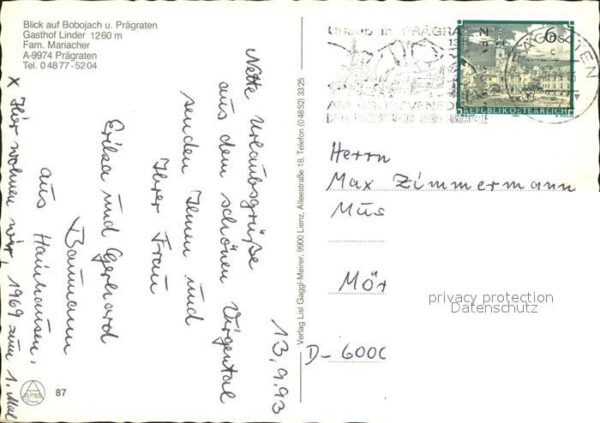 Blick auf Bobojach u. Prägraten
Gasthof Linder 1260 m
Fam. Mariacher
A-9974 Prägraten
Tel. 0 48 77 - 52 04
13.9.93
Nette Urlaubsgrüße
aus dem schönen Virgental
senden Ihnen und
Ihrer Frau
Erika und Gerhard
Baumann
aus Hainhausen.
x Hier wohnen wir 1969 zum 1. Mal
87
Verlag Lisl Gaggl-Meirer, 9900 Lienz, Alleestraße 18, Telefon (0 48 52) 33 25
Urlaub in PRÄGRATEN
AM GROSSVENEDIGER
6 S
REPUBLIK ÖSTERREICH
Herrn
Max Zimmermann
Mus
Mör
D-6000
privacy protection
Datenschutz